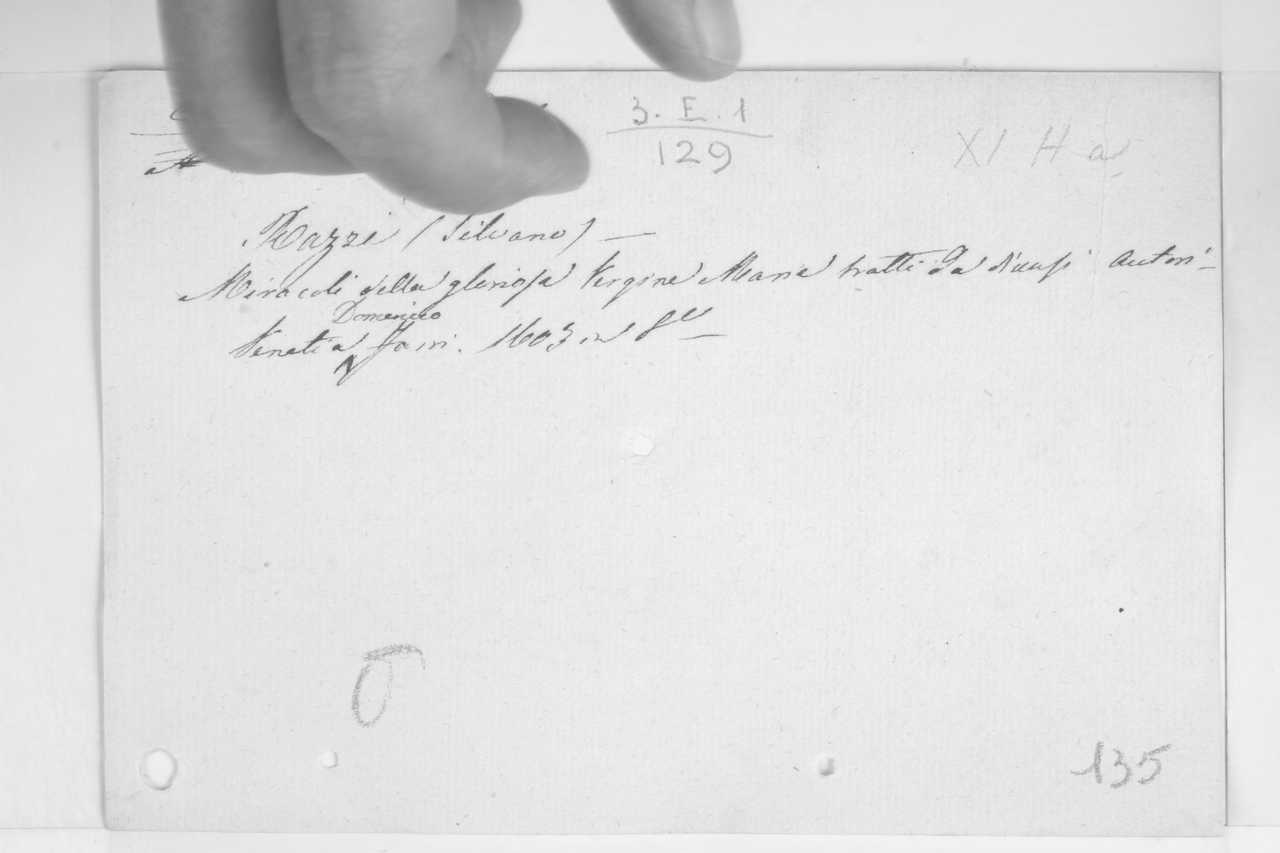 3. E. 1
129
XI H a
Razzi (Silvano) —
Miracoli della gloriosa Vergine Maria tratti da diuersi Autori –
Domenico
Venetia Farri. 1603 in 8º —
135